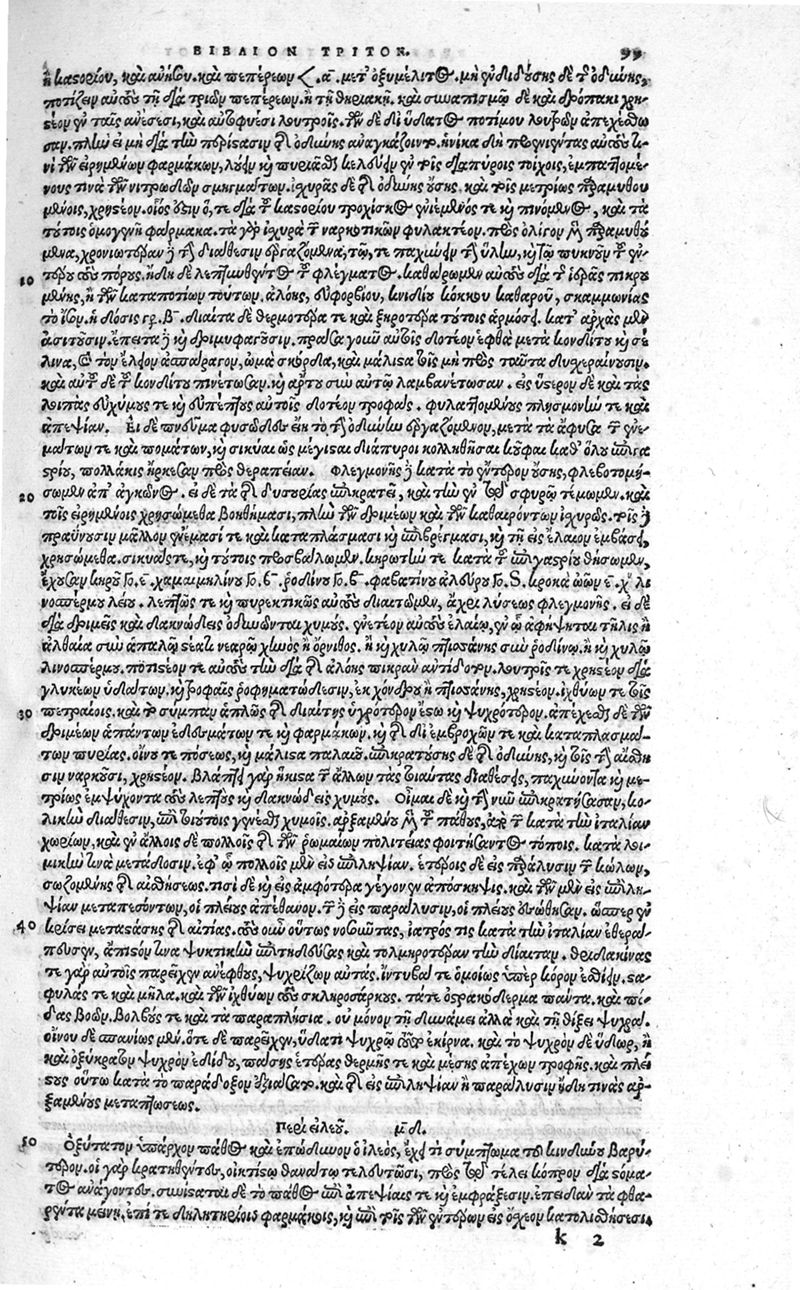 ΒΙΒΛΙΟΝ ΤΡΙΤΟΝ. 99
ἢ καστορίου, καὶ ἀνήσου. καὶ πεπέρεως 𐅻. α. μετ' ὀξυμέλιτος. μὴ ἐνδιδούσης δὲ τῆς ὀδύνης,
ποτίζειν αὐτοὺς τῇ διὰ τριῶν πεπέρεων. ἢ τῇ θηριακῇ. καὶ συναπισμῷ δὲ καὶ δρόπακι χρη-
στέον ἐν ταῖς ἀνέσεσι, καὶ αὐτοφυέσι λουτροῖς. τῶν δὲ δι' ὕδατος ποτίμου λουτρῶν ἀπεχέσθω
σαν. πλὴν εἰ μὴ διὰ τὴν περίστασιν τῆς ὀδύνης ἀναγκάζοιντο. ἡνίκα δὴ
νὶ τῶν εἰρημένων φαρμάκων, λούειν καὶ κελεύειν ἐν τοῖς διαπύροις τοίχοις, ἐμπαττομέ-
νους τινὰ τῶν νιτρωδῶν σμηγμάτων. ἰσχυρᾶς δὲ τῆς ὀδύνης οὔσης. καὶ τοῖς μετρίως παραμυθου
μένοις, χρηστέον. οἷός ἐστιν ὅ, τε διὰ τοῦ καστορίου τροχίσκος ἐνιέμενός τε καὶ πινόμενος, καὶ τὰ
τούτοις ὁμογενῆ φάρμακα. τὰ γὰρ ἰσχυρὰ τῶν ναρκωτικῶν φυλακτέον. πρὸς ὀλίγον μὲν παραμυθού
μενα, χρονιωτέραν δὲ τὴν διάθεσιν ἐργαζόμενα, τῷ, τε παχύνειν τὴν ὕλην, καὶ τῷ πυκνοῦν τοῦ ἐν-
10 τέρου τοὺς πόρους. ἤδη δὲ λεπτυνθέντος τοῦ φλέγματος. καθαίρωμεν αὐτοὺς διὰ τῆς ἱερᾶς πικρου
μένης, ἢ τῶν καταποτίων τούτων. ἀλόης, εὐφορβίου, κνιδίου κόκκου καθαροῦ, σκαμμωνίας
τὸ ἴσον. ἡ δόσις γρ. β. δίαιτα δὲ θερμοτέρα τε καὶ ξηροτέρα τούτοις ἁρμόσει. κατ' ἀρχὰς μὲν
ἀσιτοῦσιν. ἔπειτα δὲ καὶ δριμυφαγοῦσιν. πράσα γοῦν αὐτοῖς δοτέον ἑφθὰ μετὰ κονδίτου καὶ σέ
λινα, καὶ τὸν ἕλειον ἀσπάραγον, ὠμὰ σκόρδα, καὶ μάλιστα τοῖς μὴ πρὸς ταῦτα δυσχεραίνουσιν.
καὶ αὐτοῦ δὲ τοῦ κονδίτου πινέτωσαν. καὶ ἄρτου σὺν αὐτῷ λαμβανέτωσαν. εἰς ὕστερον δὲ καὶ τὰς
λοιπὰς εὐχύμους τε καὶ εὐπέπτους αὐτοῖς δοτέον τροφάς. φυλαττομένους πλησμονήν τε καὶ
ἀπεψίαν. Εἰ δὲ πνεῦμα φυσῶδες εἴη τὸ τὴν ὀδύνην ἐργαζόμενον, μετὰ τὰ ἄφυσα τῶν ἐνε-
μάτων τε καὶ πομάτων, καὶ σικύαι ὡς μέγισται διάπυροι κολληθῆσαι κοῦφαι καθ' ὅλου τοῦ ὑπογα
στρίου, πολλάκις ἤρκεσαν πρὸς θεραπείαν. Φλεγμονῆς δὲ κατὰ τὸ ἔντερον οὔσης, φλεβοτομή-
20 σωμεν ἀπ' ἀγκῶνος. εἰ δὲ τὰ τῆς δυσουρίας ἐπικρατεῖ, καὶ τὴν ἐν τῷ σφυρῷ τέμωμεν. καὶ
τοῖς εἰρημένοις χρησώμεθα βοηθήμασι, πλὴν τῶν δριμέων καὶ τῶν καθαιρόντων ἰσχυρῶς. τοῖς δὲ
πραΰνουσιν μᾶλλον ἐνέμασί τε καὶ καταπλάσμασι καὶ ἐπιβρέγμασι, καὶ τῇ εἰς ἔλαιον ἐμβάσει,
χρησώμεθα. σικύας τε, καὶ τούτοις προσβάλωμεν. κηρωτήν τε κατὰ τοῦ ὑπογαστρίου θήσωμεν,
ἔχουσαν κηροῦ γο. ε. χαμαιμηλίνου γο. β. ῥοδίνου γο. β. φαβατίνου ἀλεύρου γο. S. κροκὰ ὠῶν ε. λι
νοσπέρμου λείου. λεπτῶς τε καὶ πυρεκτικῶς αὐτοὺς διαιτῶμεν, ἄχρι λύσεως φλεγμονῆς. εἰ δὲ
διὰ δριμεῖς καὶ δακνώδεις ὀδυνῶνται χυμούς. ἐνετέον αὐτοὺς ἐλαίῳ, ἐν ᾧ ἀφήψηται τῆλις ἢ
ἀλθαία σὺν ἁπαλῷ στέατι νεαρῷ χηνὸς ἢ ὄρνιθος. ἢ καὶ χυλῷ πτισάνης σὺν ῥοδίνῳ. ἢ καὶ χυλῷ
λινοσπέρμου. ποτιστέον τε αὐτοὺς τὴν διὰ τῆς ἀλόης πικρὰν ἀντίδοτον. λουτροῖς τε χρηστέον διὰ
γλυκέων ὑδάτων. καὶ τροφαῖς ῥοφηματώδεσιν, ἐκ χόνδρου ἢ πτισάνης, χρηστέον. ἰχθύων τε τοῖς
30 πετραίοις. καὶ τὸ σύμπαν ἁπλῶς τῆς διαίτης ὑγρότερον ἔστω καὶ ψυχρότερον. ἀπέχεσθαι δὲ τῶν
δριμέων ἁπάντων ἐδεσμάτων τε καὶ φαρμάκων. καὶ τῆς δι' ἐμβροχῶν τε καὶ καταπλασμά-
των πυρίας. οἴνου τε πόσεως, καὶ μάλιστα παλαιοῦ. ἐπικρατούσης δὲ τῆς ὀδύνης, καὶ τοῖς τὴν αἴσθη
σιν ναρκοῦσι, χρηστέον. βλάπτει γὰρ ἥκιστα τῶν ἄλλων τὰς τοιαύτας διαθέσεις, παχύνοντα καὶ με-
τρίως ἐμψύχοντα τοὺς λεπτοὺς καὶ δακνώδεις χυμούς. Οἶμαι δὲ καὶ τὴν νῦν ἐπικρατήσασαν, κω-
λικὴν διάθεσιν, ἐπὶ τοιούτοις γενέσθαι χυμοῖς. ἀρξαμένου μὲν τοῦ πάθους, ἀπὸ τῶν κατὰ τὴν ἰταλίαν
χωρίων, καὶ ἐν ἄλλοις δὲ πολλοῖς τῆς τῶν ῥωμαίων πολιτείας φοιτήσαντος τόποις. κατὰ λοι-
μικήν τινα μετάδοσιν. ἐφ' ᾧ πολλοῖς μὲν εἰς ἐπιληψίαν. ἑτέροις δὲ εἰς παράλυσιν τῶν κώλων,
σωζομένης τῆς αἰσθήσεως. τισὶ δὲ καὶ εἰς ἀμφότερα γέγονεν ἀπόσκηψις. καὶ τῶν μὲν εἰς ἐπιλη-
ψίαν μεταπεσόντων, οἱ πλείους ἀπέθανον. τῶν δὲ εἰς παράλυσιν, οἱ πλείους ἐσώθησαν. ὥσπερ ἐν
40 κρίσει μεταστάσης τῆς αἰτίας. τοὺς οὖν οὕτως νοσοῦντας, ἰατρός τις κατὰ τὴν ἰταλίαν ἐθερά-
πευσεν, ἄπιστόν τινα ψυκτικὴν ἐπιτηδεύσας καὶ τολμηροτέραν τὴν δίαιταν. θριδακίνας
τε γὰρ αὐτοῖς παρεῖχεν ἀνέφθους, ψυχρίζων αὐτάς. ἴντυβά τε ὁμοίως ὑπὲρ κόρον ἐσθίειν. στα
φυλάς τε καὶ μῆλα. καὶ τῶν ἰχθύων τοὺς σκληροσάρκους. τά τε ὀστρακόδερμα πάντα. καὶ πό
δας βοῶν. βολβούς τε καὶ τὰ παραπλήσια. οὐ μόνον τῇ δυνάμει ἀλλὰ καὶ τῇ θίξει ψυχρά.
οἴνου δὲ σπανίως μὲν. ὅτε δὲ παρεῖχεν, ὕδατι ψυχρῷ τοῦτον ἐκίρνα. καὶ τὸ ψυχρὸν δὲ ὕδωρ, ἢ
καὶ ὀξύκρατον ψυχρὸν ἐδίδου, πάσης ἑτέρας θερμῆς τε καὶ μέσης ἀπέχων τροφῆς. καὶ πλεί
στους οὕτω κατὰ τὸ παράδοξον ἐξιάσατο. καὶ τῆς εἰς ἐπιληψίαν ἢ παράλυσιν ἤδη τινὰς ἀρ-
ξαμένους μεταπτώσεως.
Περὶ εἰλεοῦ. μδ.
50 Ὀξύτατον ὑπάρχον πάθος καὶ ἐπώδυνον ὁ ἰλεὸς, ἔχει τι σύμπτωμα τοῦ κινδύνου βαρύ-
τερον. οἱ γὰρ κρατηθέντες, οἰκτίστῳ θανάτῳ τελευτῶσι, πρὸς τῷ τέλει κόπρον διὰ στόμα-
τος ἀνάγοντες. συνίσταται δὲ τὸ πάθος ἐπὶ ἀπεψίαις τε καὶ ἐμφράξεσιν. ἐπειδὰν τὰ φθα-
ρέντα μείνῃ. ἐπί τε δηλητηρίοις φαρμάκοις, καὶ ἐπὶ τοῖς τῶν ἐντέρων εἰς ὄσχεον κατολισθήσεσι.
k 2